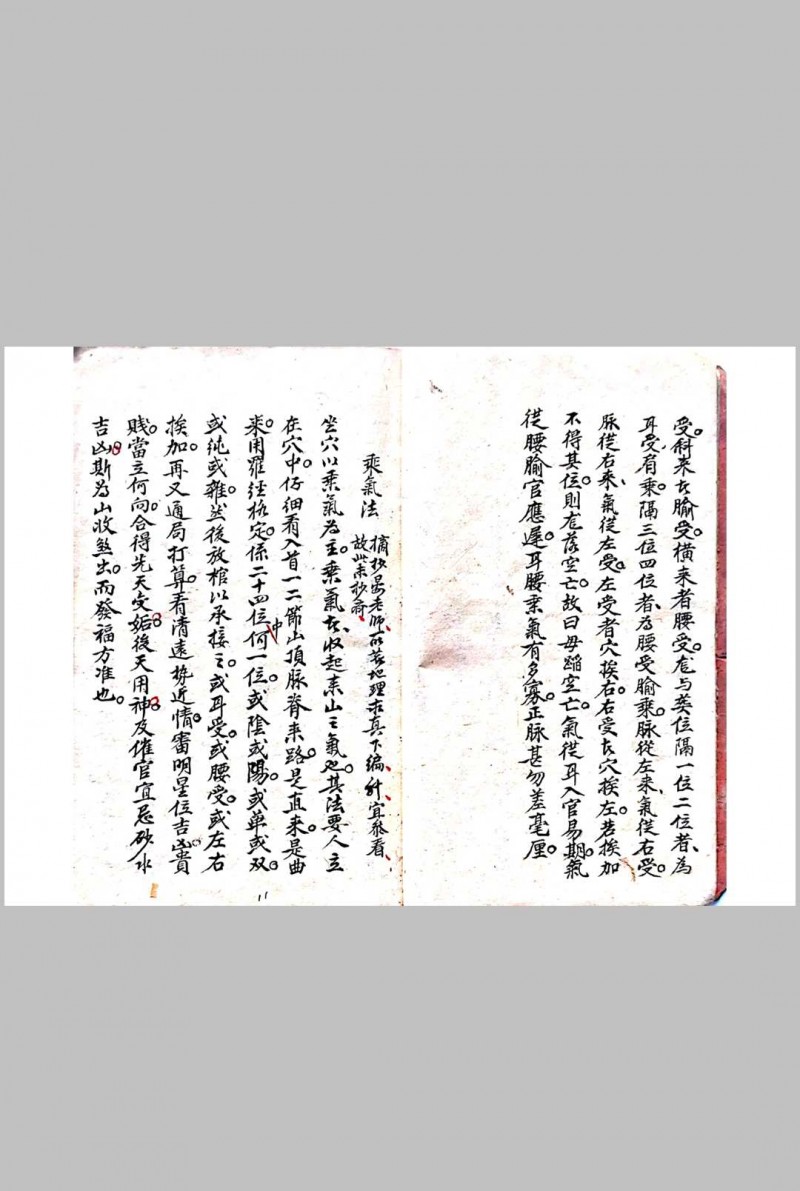 受。斜来者腧受。横来者腰受。龙与英位隔一位二位者、為
耳受。有乘。隔三位四位者、為腰受腧乘。脉從左来、氣從右受。
脉從右来、氣從左受。左受者穴挨右。右受者穴挨左。若挨加
不得其位。則龙落空亡。故曰毋蹈空亡。氣從耳入官易期。氣
從腰腧官應遲。耳腰乘氣有多寡。正脉甚勿差毫厘。
乘氣法
摘抄晏老師所著地理求真下編、針宜参看、
故此未抄齊
坐穴以乘氣為主。乘氣者、收起来山之氣也。其法要人立
在穴中。仔細看入首一二節山頂脉脊来路。是直来。是曲
来。用羅經格定。係二十四位中何一位。或陰或陽。或单或双。
或纯或雜。然後放棺以承接之。或耳受。或腰受。或左右
挨加。再又通局打算。看清遠势近情。審明星位吉凶貴
贱。當立何向。合得先天交姤。後天用神。及催官宜忌砂水
吉凶。斯為山收煞出。而發福方准也。
11